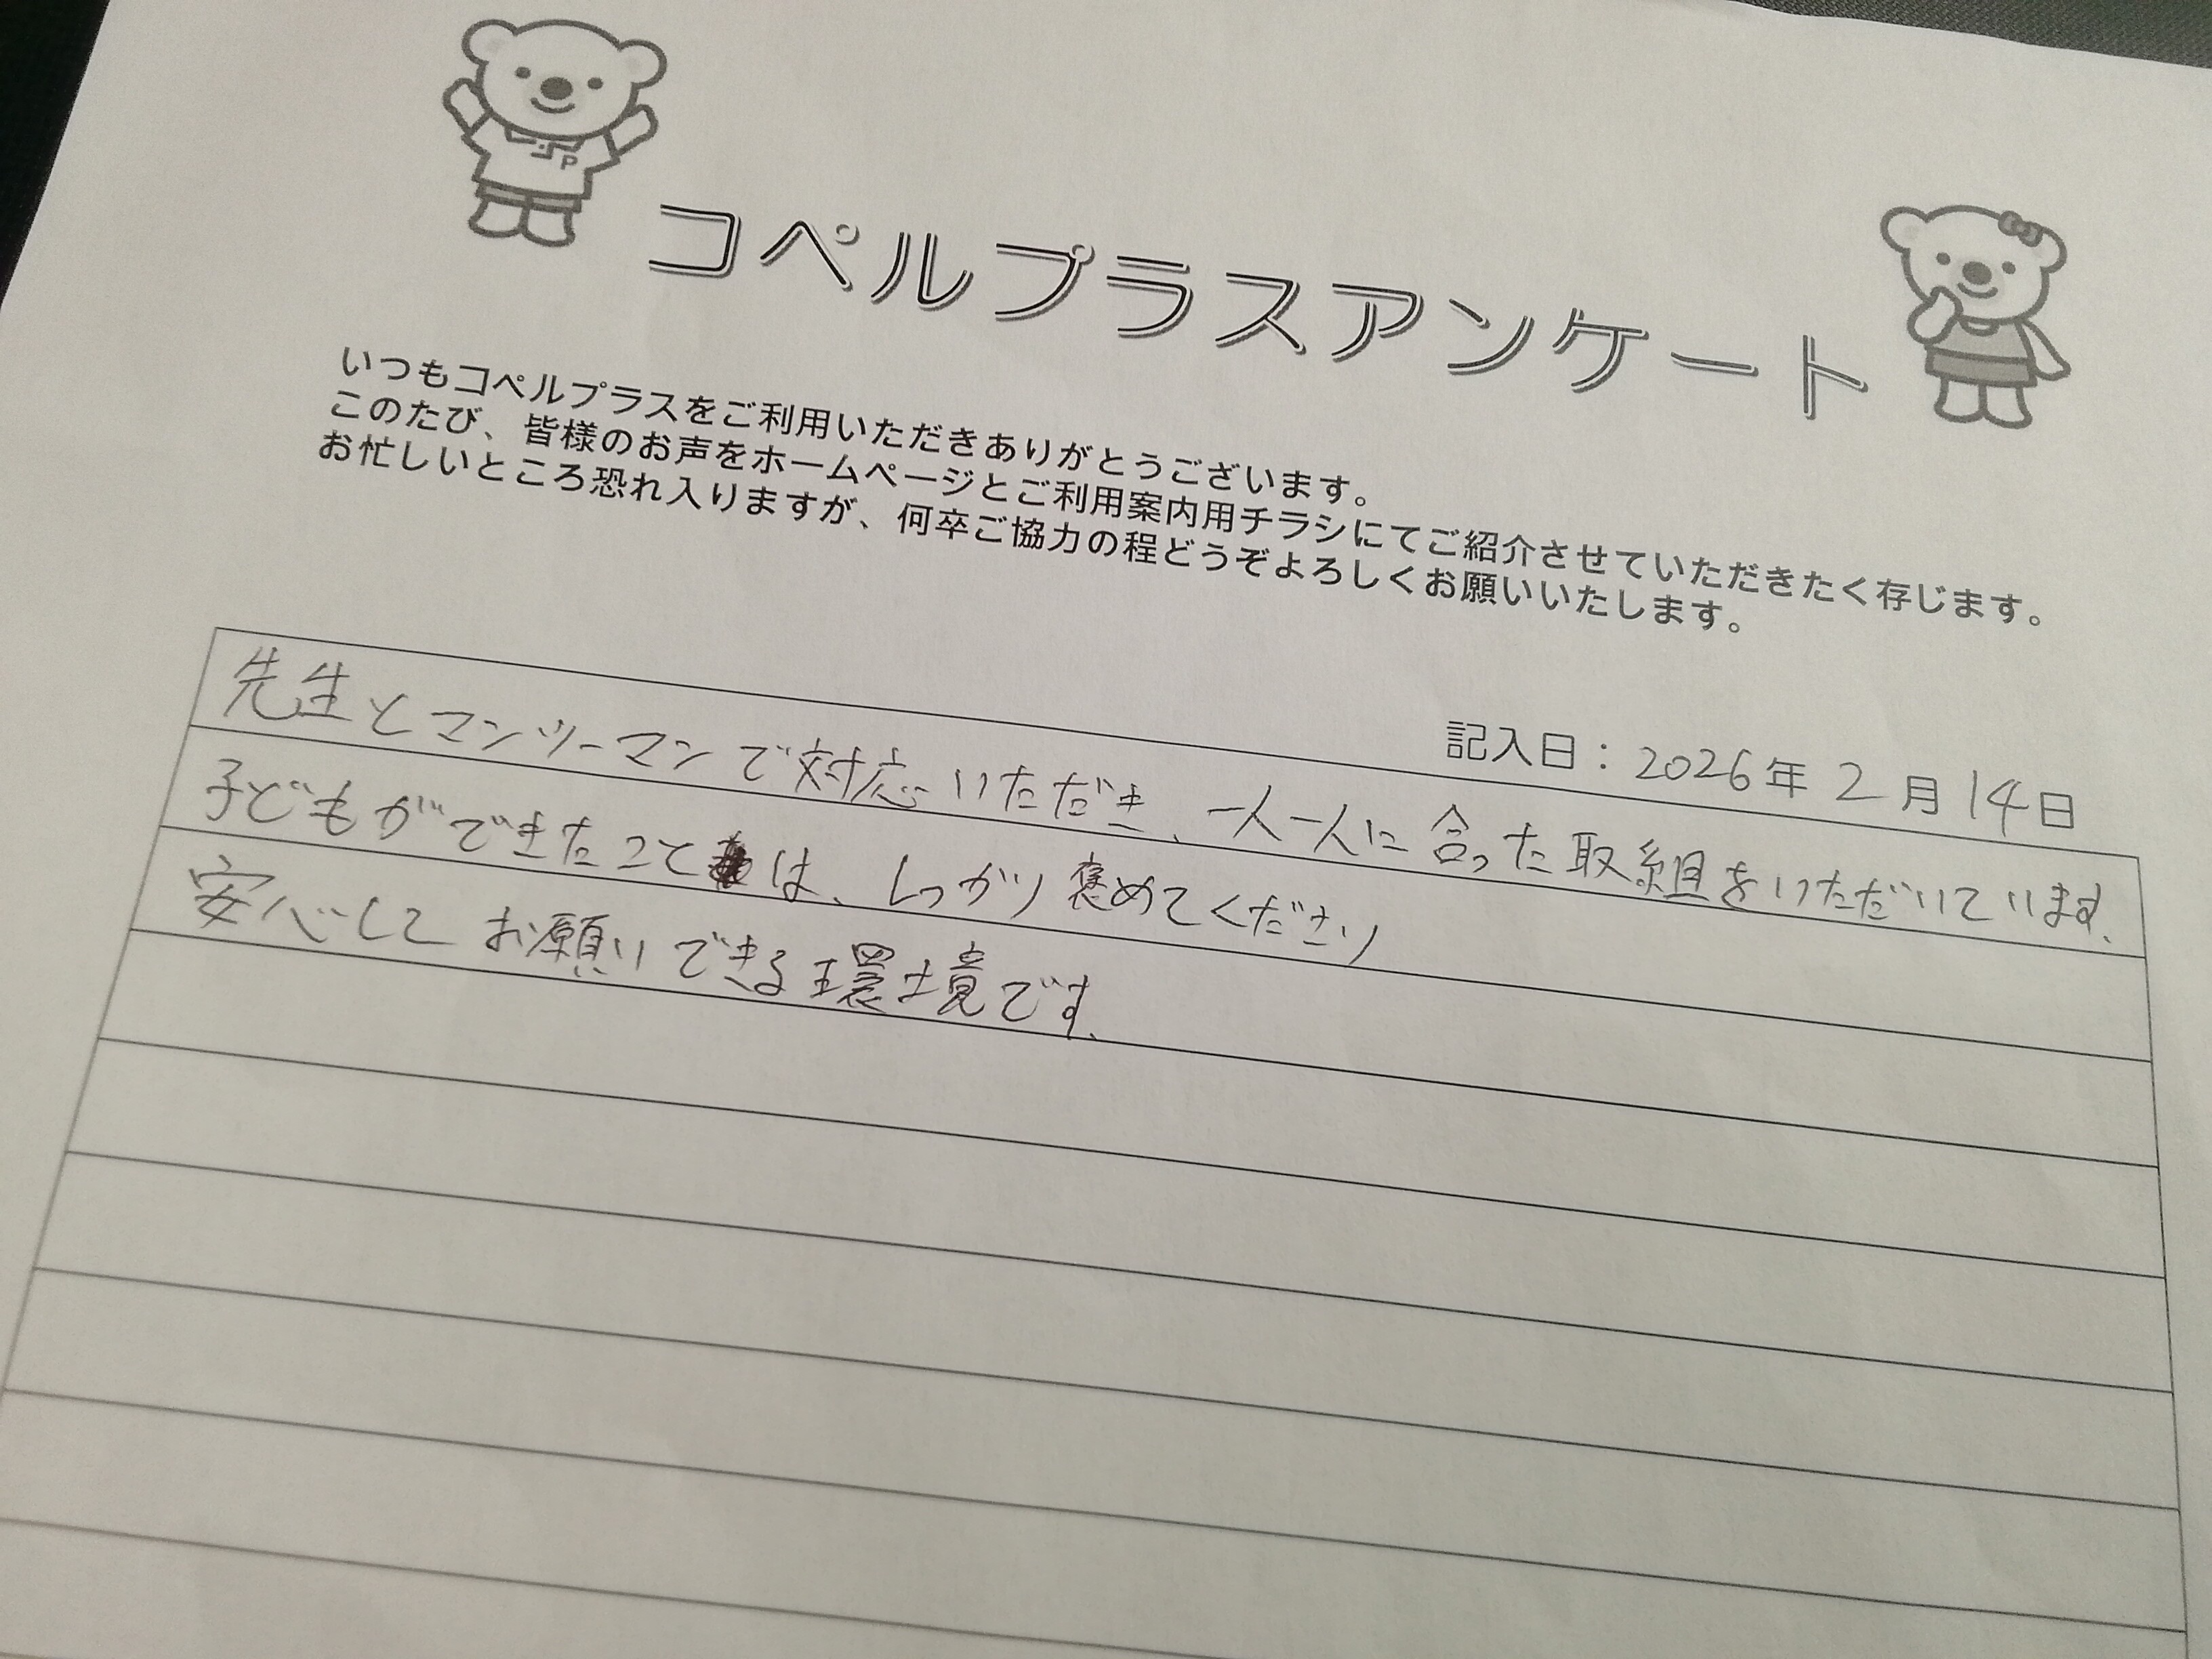 コペルプラスアンケート
いつもコペルプラスをご利用いただきありがとうございます。
このたび、皆様のお声をホームページとご利用案内用チラシにてご紹介させていただきたく存じます。
お忙しいところ恐れ入りますが、何卒ご協力の程どうぞよろしくお願いいたします。
記入日：2026年2月14日
先生とマンツーマンで対応いただき、一人一人に合った取組をいただいています。
子どもができたことは、しっかり褒めてくださり
安心してお願いできる環境です。